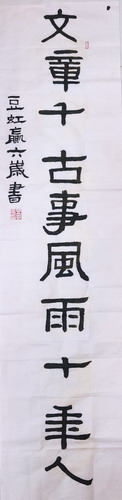 文章千古事風雨十年人
豆虹贏六歲書